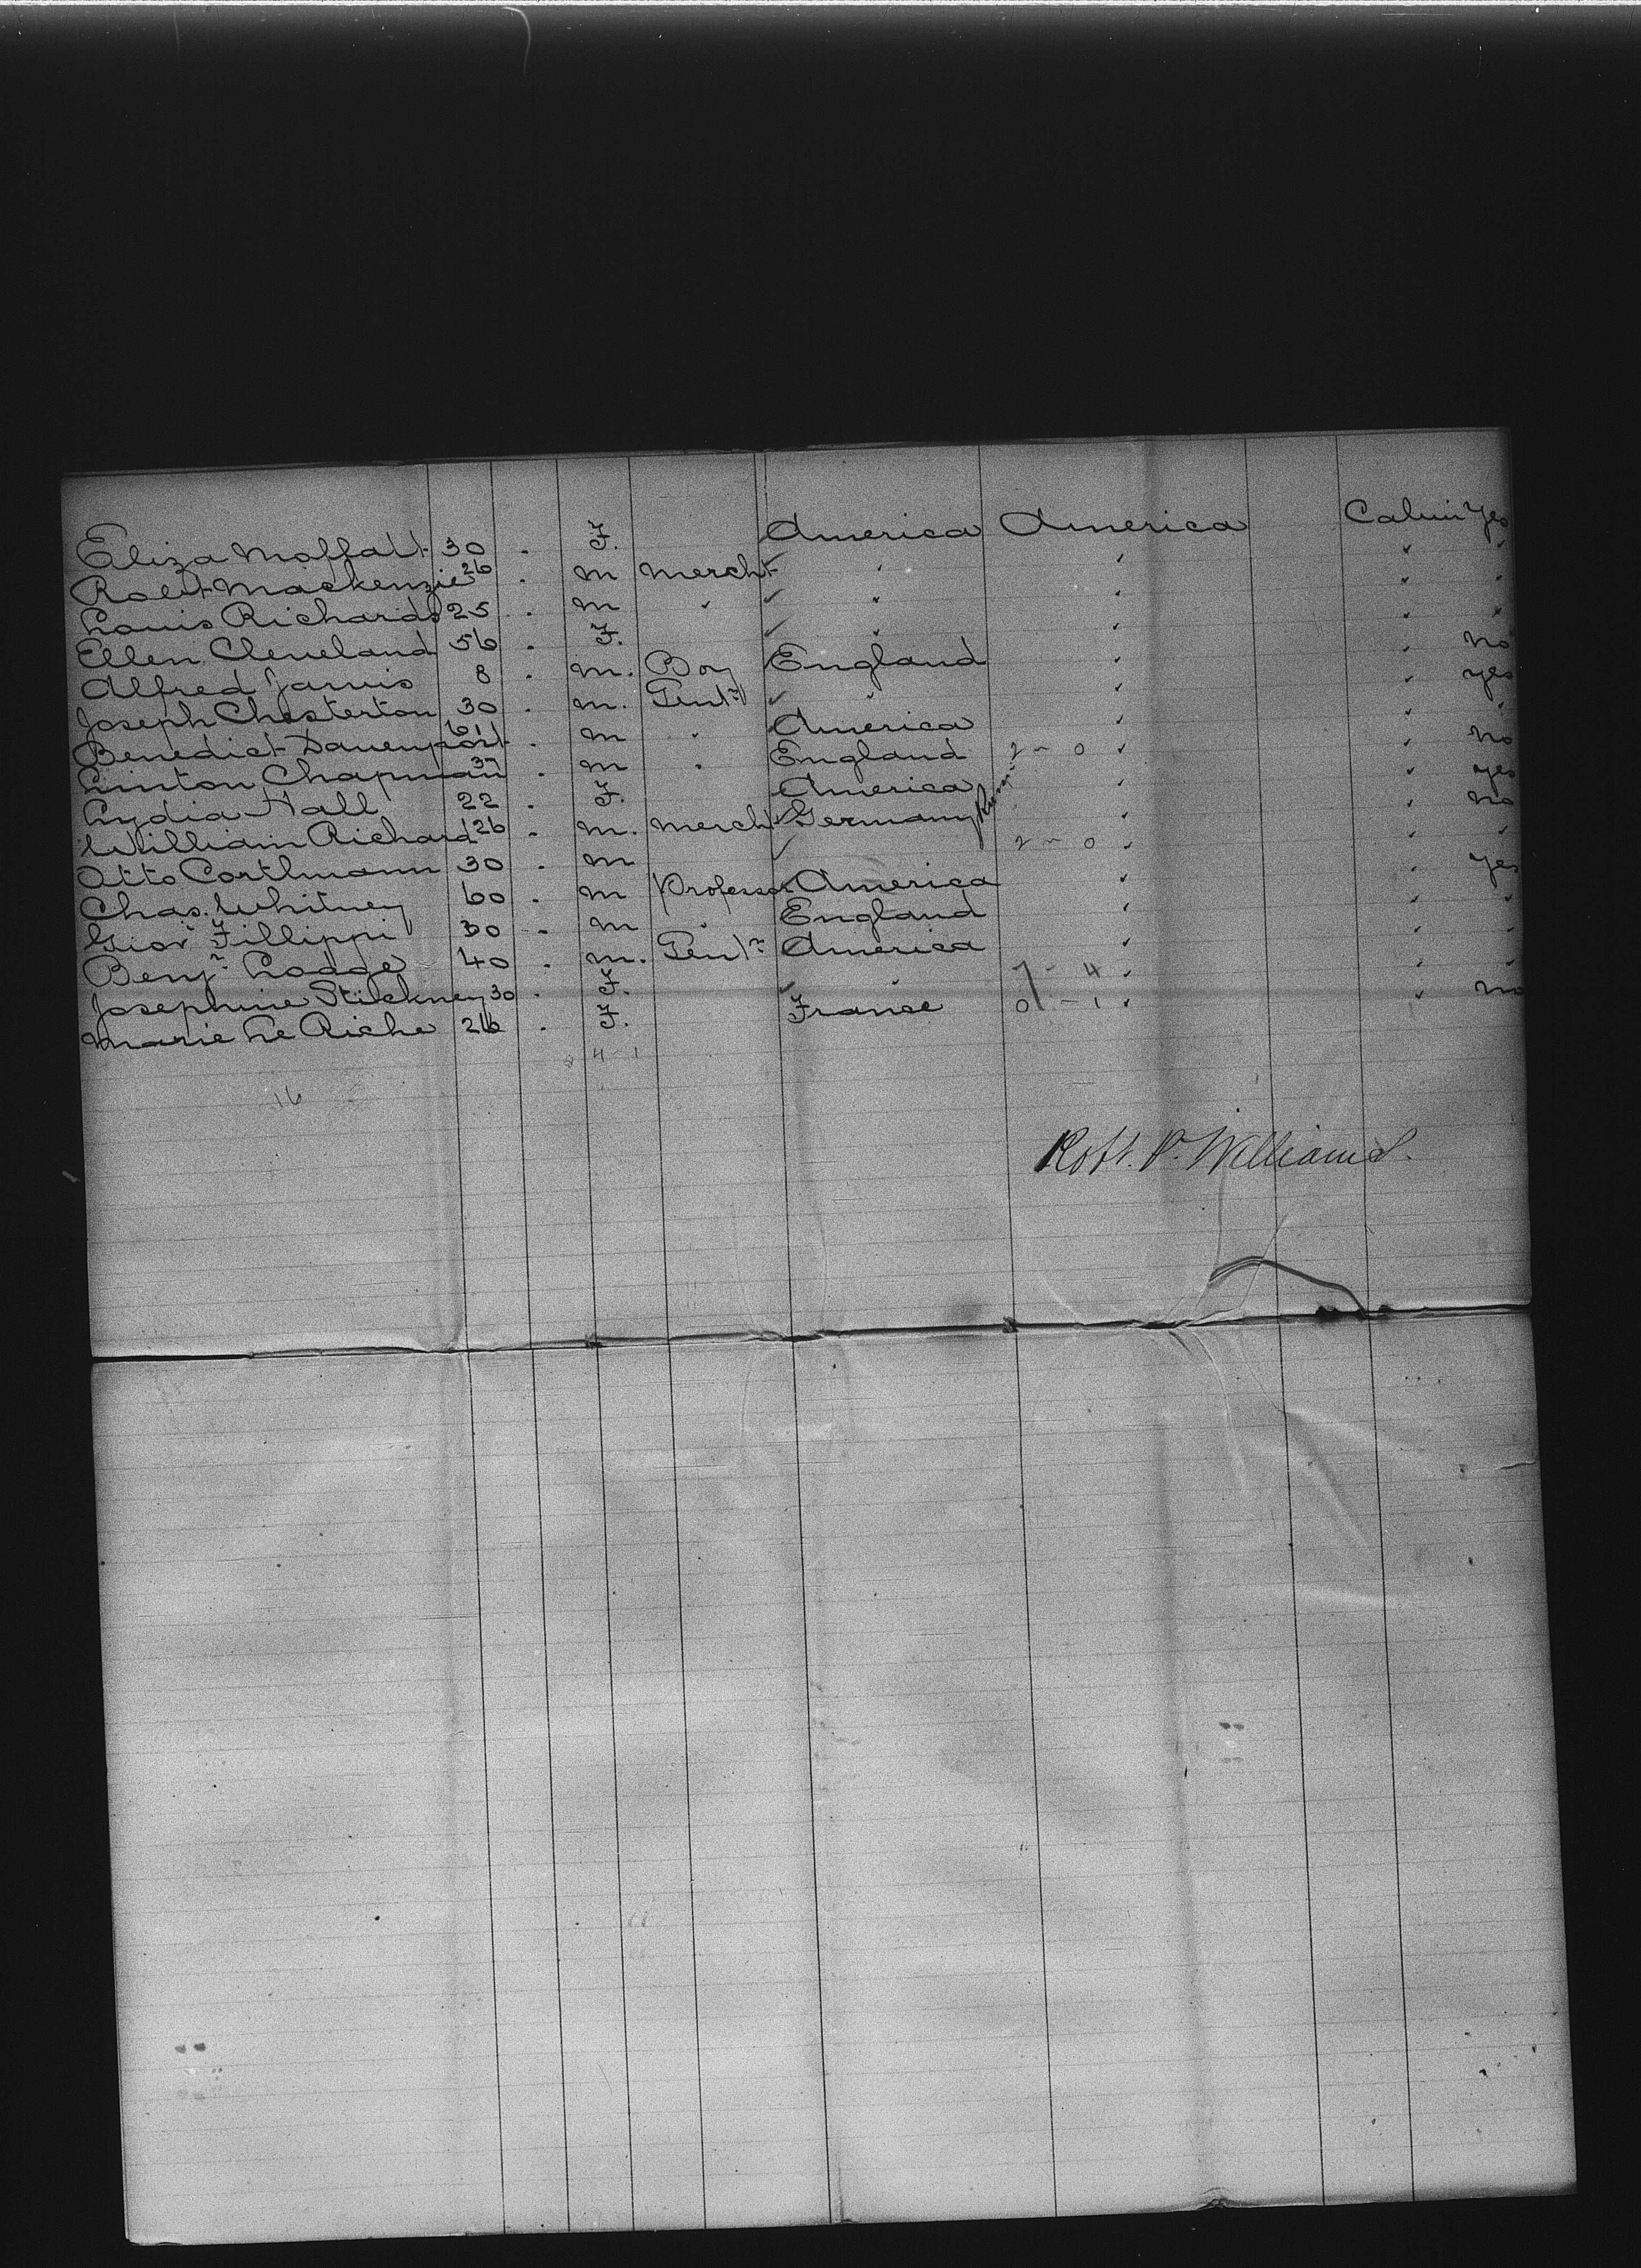 Eliza Moffatt 30 . F. America America Cabin Yes
Robt Mackenzie 26 . m mercht " " " "
Louis Richards 25 . m " " " " "
Ellen Cleveland 56 . F. " " " "
Alfred Jarvis 8 . m. Boy England " " no
Joseph Chesterton 30 . m. Gentn " " " yes
Benedict Davenport 61 . m " America " " "
Linton Chapman 37 . m " England 2 - 0 " " no
Lydia Hall 22 . F. America " " yes
William Richard 26 . m. mercht Germany " " no
Otto Cortlmann 30 . m 2 - 0 " " "
Chas. Whitney 60 . m Professor America " " yes
Giovi Fillippi 30 . m " England " " "
Benjn Lodge 40 . m. Gentn America " " "
Josephine Stickney 30 . F. " 7 - 4 " " "
Marie Le Riche 26 . F. France 0 - 1 " " no
4 - 1
16
Robt. P. Williams.